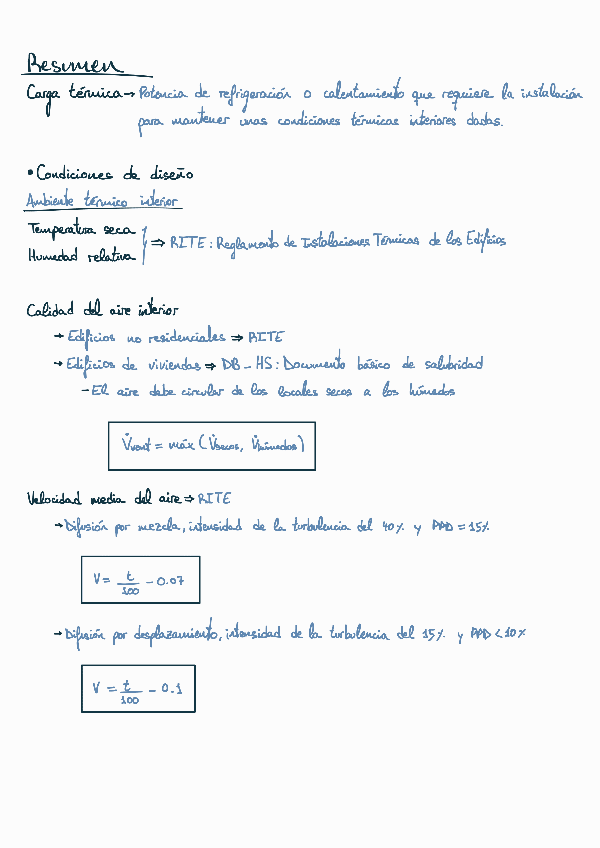 Resumen
Carga térmica → Potencia de refrigeración o calentamiento que requiere la instalación
para mantener unas condiciones térmicas interiores dadas.
• Condiciones de diseño
Ambiente térmico interior
Temperatura seca
Humedad relativa
⇒ RITE: Reglamento de Instalaciones Térmicas de los Edificios
Calidad del aire interior
→ Edificios no residenciales ⇒ RITE
→ Edificios de viviendas ⇒ DB-HS: Documento básico de salubridad
- El aire debe circular de los locales secos a los húmedos
V̇vent = máx (V̇secos, V̇húmedos)
Velocidad media del aire ⇒ RITE
→ Difusión por mezcla, intensidad de la turbulencia del 40% y PPD = 15%
V = t/100 - 0.07
→ Difusión por desplazamiento, intensidad de la turbulencia del 15% y PPD < 10%
V = t/100 - 0.1